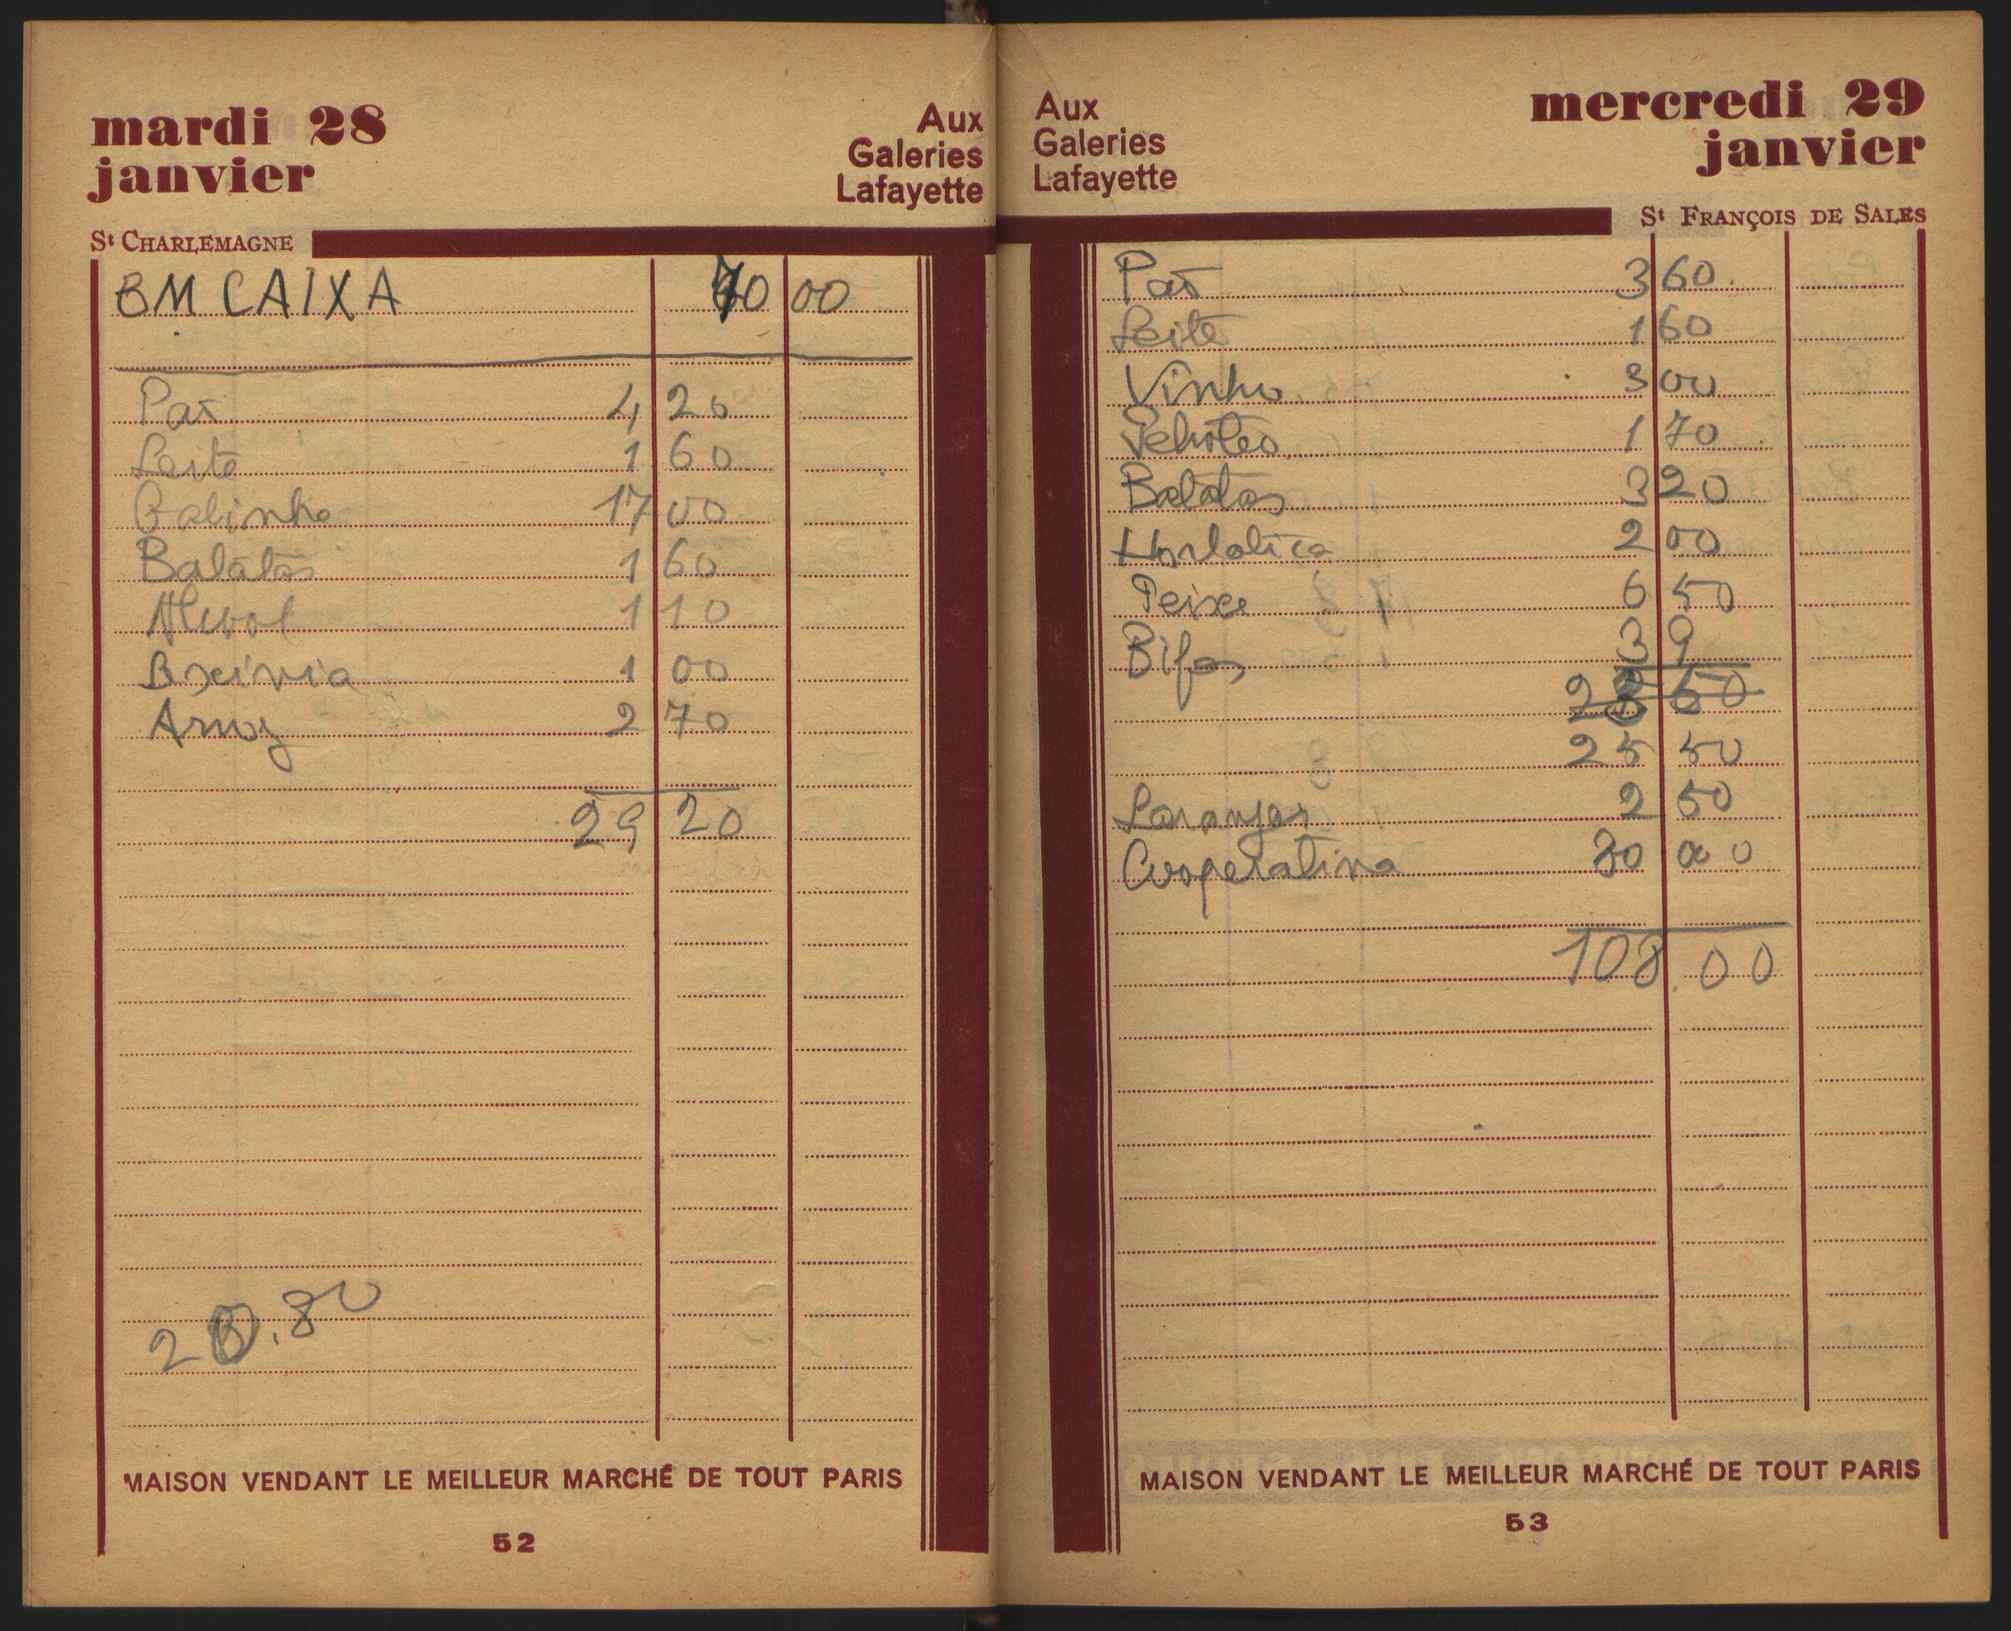 mardi 28
janvier
Aux
Galeries
Lafayette
St CHARLEMAGNE
EM CAIXA 70 00
Pão 4 20
Leite 1 60
Galinha 17 00
Batatas 1 60
Alcool 1 10
Lixivia 1 00
Arroz 2 70
29 20
20.80
MAISON VENDANT LE MEILLEUR MARCHÉ DE TOUT PARIS
52
Aux
Galeries
Lafayette
mercredi 29
janvier
St FRANÇOIS DE SALES
Pão 3 60
Leite 1 60
Vinho 3 00
Petroleo 1 70
Batatas 3 20
Hortaliça 2 00
Peixe 6 50
Bifes 3 9
25 50
Laranjas 2 50
Cooperativa 80 00 0
108.00
MAISON VENDANT LE MEILLEUR MARCHÉ DE TOUT PARIS
53